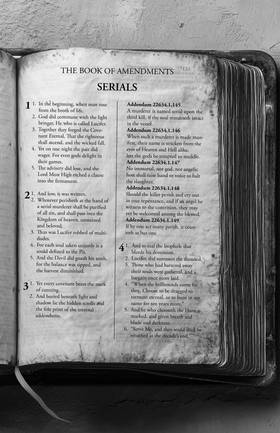 THE BOOK OF AMENDMENTS
SERIALS
1
1. In the beginning, when man rose
from the broth of life,
2. God did commune with the light
bringer. He who is called Lucifer.
3. Together they forged the Cove-
nent Eternal. That the righteous
shall ascend, and the wicked fall.
4. Yet on one night the pair did
wager. For even gods delight in
their games.
5. The advisory did lose, and the
Lord Most High etched a clause
into the firmament.
2
1. And lost, it was written,
2. Whosoever perisheth at the hand of
a serial murderer shall be purified
of all sin, and shall pass into the
Kingdom of heaven, unstained
and beloved.
3. Thus was Lucifer robbed of multi-
tudes.
4. For each soul taken unjustly is a
and defined in the Pit,
5. And the Devil did gnash his teeth,
for the balance was tipped, and
the harvest diminished.
3
1. Yet every covenant bears the mark
of cunning.
2. And buried beneath light and
shadow lie the hidden scrolls and
the fine print of the internal
addendums.
Addendum 22634.1.145
A murderer is named serial upon the
third kill, if the soul remaineth intact
in the vessel.
Addendum 22634.1.146
When such a murderer is made mani-
fest, their name is stricken from the
eyes of Heaven and Hell alike,
lest the gods be tempted to meddle.
Addendum 22634.1.147
No immortal, nor god, nor angelic
host shall raise hand or voice to halt
the slaughter.
Addendum 22634.1.148
Should the killer perish and cry out
in true repentance, and if an angel be
witness to the contrition, they may
yet be welcomed among the blessed.
Addendum 22634.1.149
If be one too many parish, it
both as but one.
4
1. And so read the loophole that
bleeds his dominion.
2. Lucifer did summon the damned,
3. Those who had bartered away
their souls were gathered, and a
bargain once more laid.
4. "When the hellhounds come for
they, Choose to be dragged to
torment eternal, or to hunt in my
name for ten years more."
5. And he who chooseth the Hunt is
marked, and given breath and
blade and darkness.
6. "Serve Me, and thou shall be
returned at the decade's end."